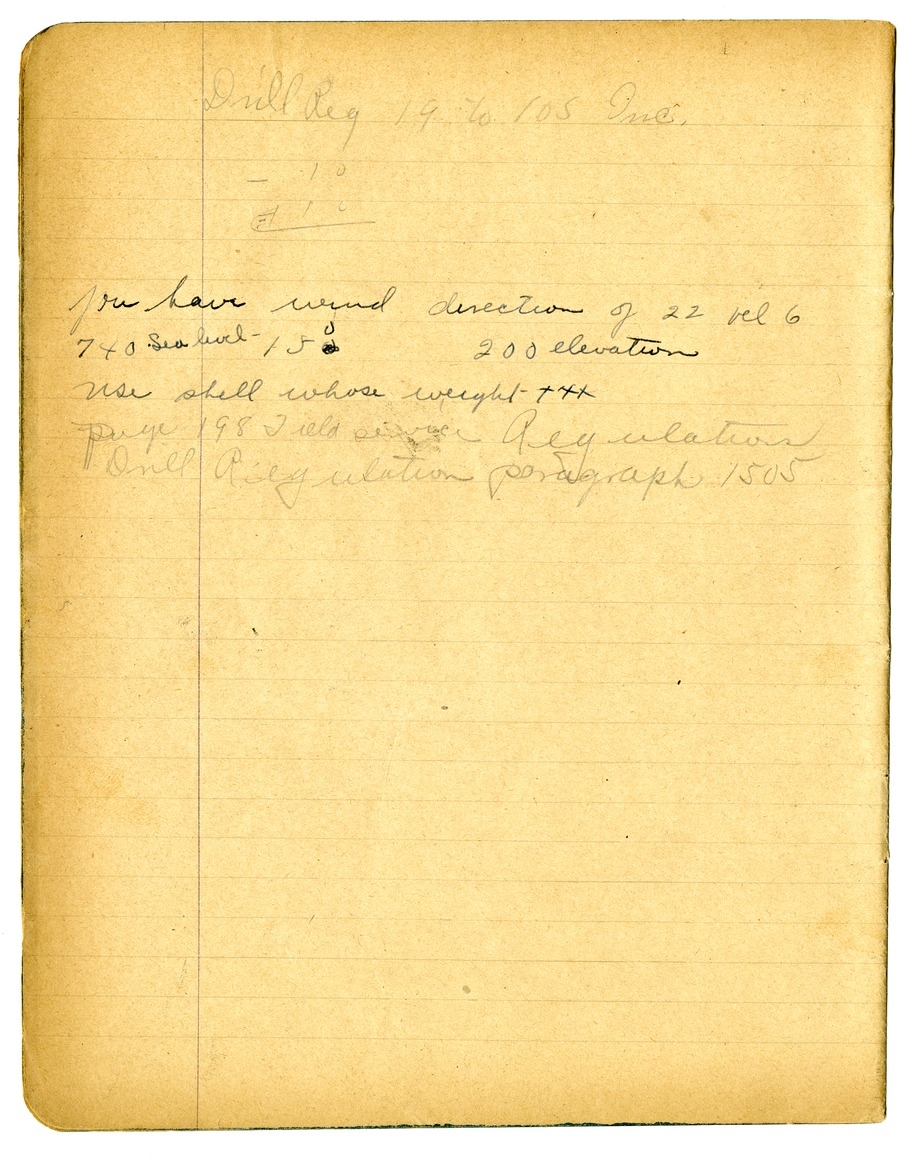 Drill Reg 19 to 105 Inc.
- 10
+ 10
you have wind direction of 22 vel 6
740 Sea level - 150 200 elevation
use shell whose weight +++
page 198 Field service Regulation
Drill Regulation paragraph 1505